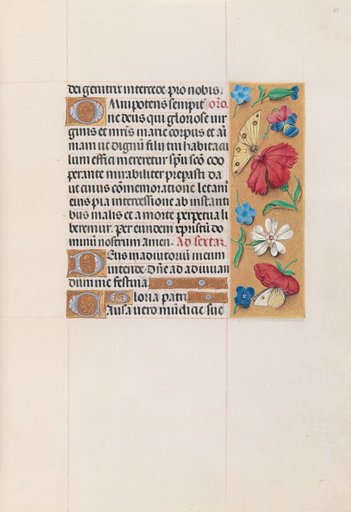 dei genitrix intercede pro nobis. oro.
Omnipotens sempit̄
ne deus qui gloriose vir
ginis et mr̄is marie corpus et aī
mam ut dignū filii tui habitacu
lum effici mereretur spū sctō coo
perante mirabiliter preparasti da
ut cuius cōmemoratione letam̄
eius pia intercessione ab instanti
bus malis et a morte perpetua li
beremur. per eundem xpristū do
minū nostrum amen. Ad sextaz.
Deus in adiutoriū meum
intende dn̄e ad adiuuan
dum me festina.
Gloria patri
Causa vero mūdicie sue